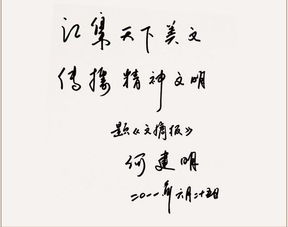 汇集天下美文
传播精神文明
题《文摘报》
何建明
二〇一一年六月二十五日